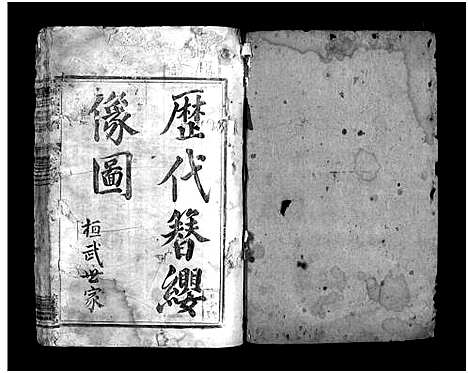 歷代簪纓
像圖
桓武世家